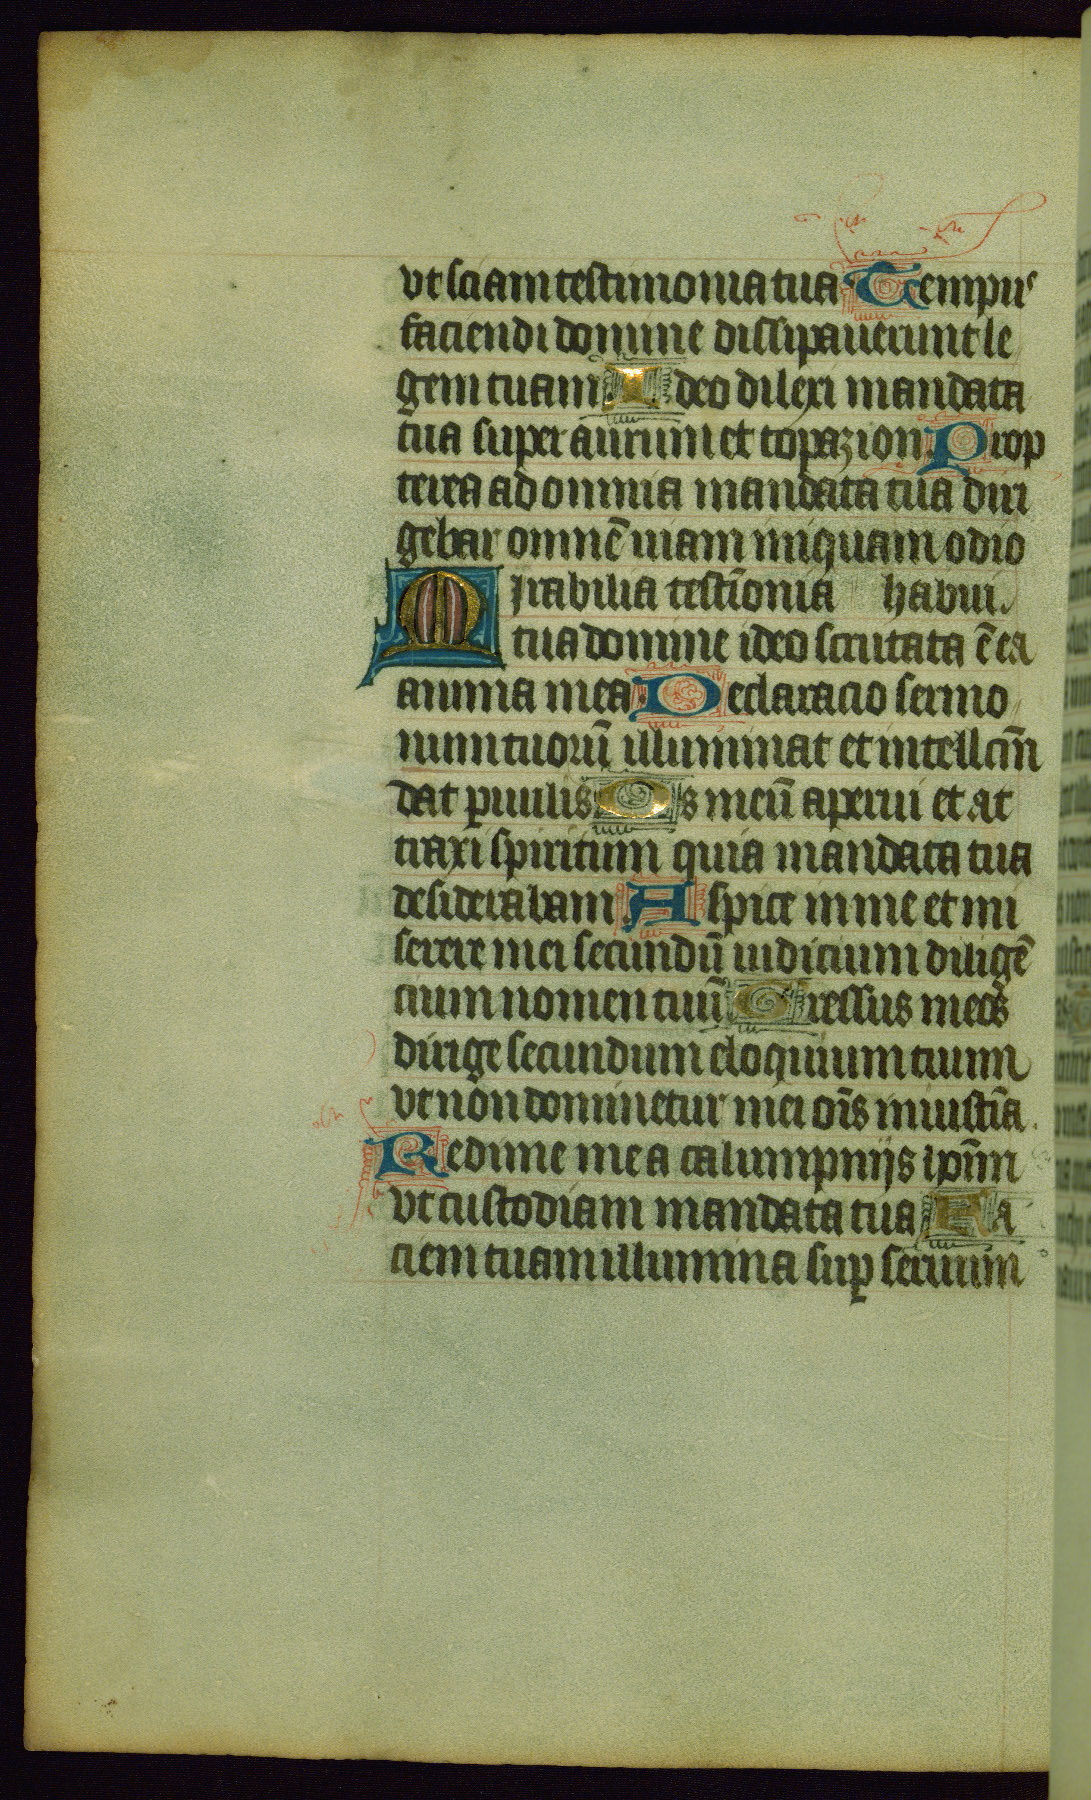 vt sciam testimonia tua Tempus
faciendi domine dissipauerunt le
gem tuam Ideo dilexi mandata
tua super aurum et topazion Prop
terea ad omnia mandata tua diri
gebar omnē uiam iniquam odio
Mirabilia testīonia habui.
tua domine ideo scrutata ē ea
anima mea Declaracio sermo
num tuorū illuminat et intellcm̄
dat puulis Os meū aperui et at
traxi spiritum quia mandata tua
desiderabam Aspice in me et mi
serere mei secundū iudicium diligē
cium nomen tuū Gressus meos
dirige secundum eloquium tuum
vt non dominetur mei oīs iniustīa.
Redime me a calumpnijs ipm̄
vt custodiam mandata tua Fa
ciem tuam illumina sup seruum